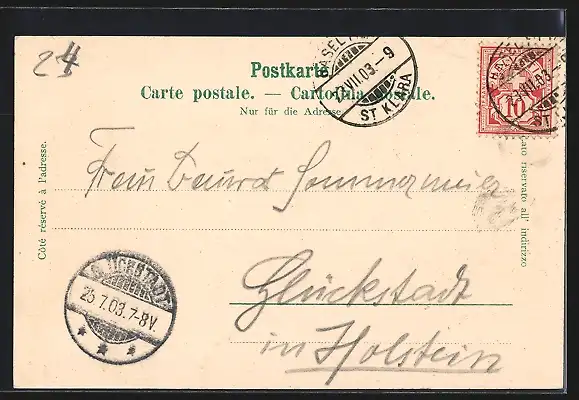 24
Postkarte.
Carte postale. — Cartolina postale.
Nur für die Adresse.
Côté réservé à l'adresse.
Lato riservato all' indirizzo
BASEL
VII.03.–9
ST KLARA
10
VII.03
ST
Frau Baurat Sommermeier
Glückstadt
in Holstein
GLÜCKSTADT
25.7.03.7-8V.